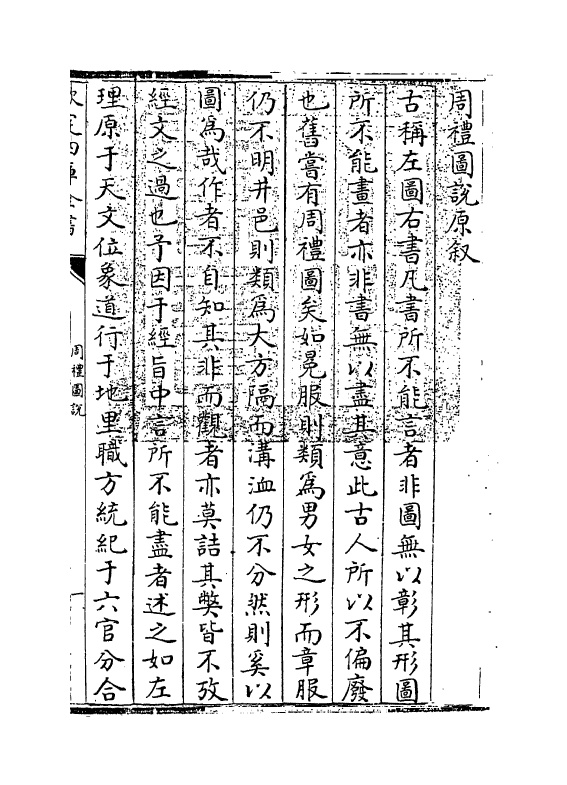 周禮圖說原叙
古稱左圖右書凡書所不能言者非圖無以彰其形圖
所不能畫者亦非書無以盡其意此古人所以不偏廢
也舊嘗有周禮圖矣如冕服則類為男女之形而章服
仍不明井邑則類為大方隔而溝洫仍不分然則奚以
圖為哉作者不自知其非而觀者亦莫詰其弊皆不攷
經文之過也予因于經旨中言所不能盡者述之如左
理原于天文位象道行于地里職方統紀于六官分合
欽定四庫全書
周禮圖說
一